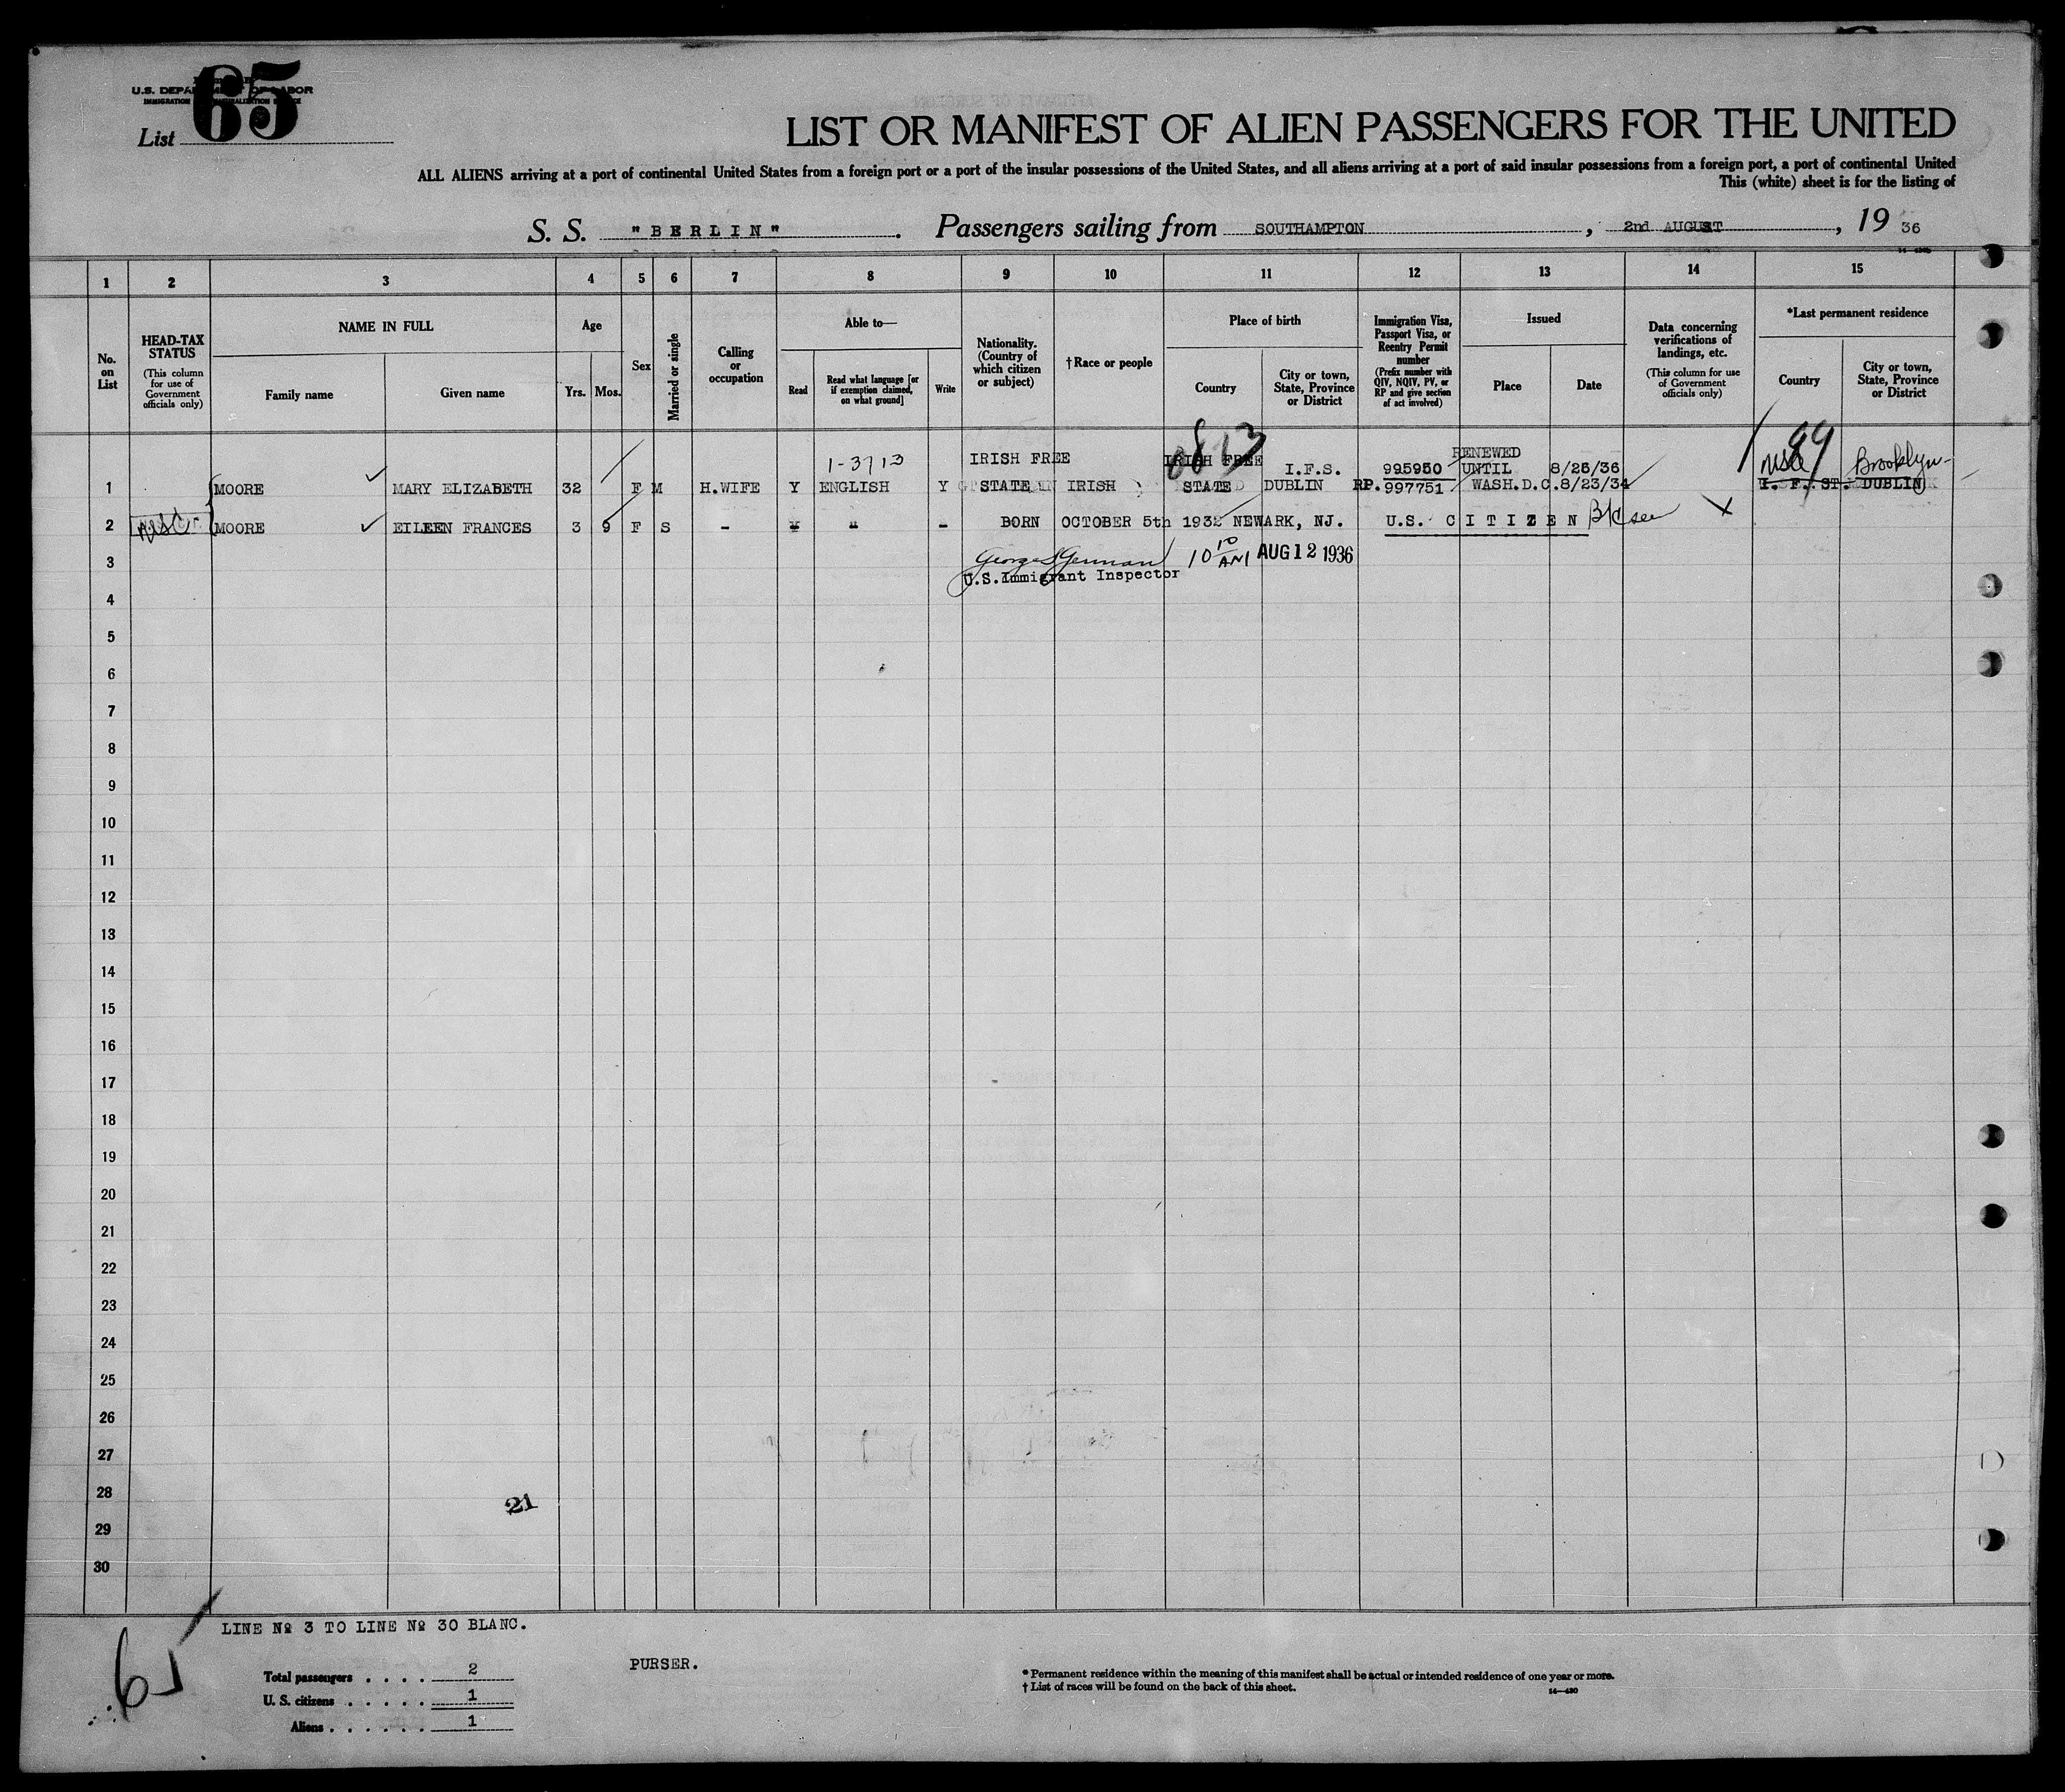 U.S. DEPARTMENT OF LABOR
IMMIGRATION NATURALIZATION SERVICE
List 65
LIST OR MANIFEST OF ALIEN PASSENGERS FOR THE UNITED
ALL ALIENS arriving at a port of continental United States from a foreign port or a port of the insular possessions of the United States, and all aliens arriving at a port of said insular possessions from a foreign port, a port of continental United
This (white) sheet is for the listing of
S. S. "BERLIN". Passengers sailing from SOUTHAMPTON, 2nd AUGUST, 19 36
1 2 3 4 5 6 7 8 9 10 11 12 13 14 15
No. on List
HEAD-TAX STATUS
(This column for use of Government officials only)
NAME IN FULL
Family name
Given name
Age
Yrs. Mos.
Sex
Married or single
Calling or occupation
Able to—
Read
Read what language [or if exemption claimed, on what ground]
Write
Nationality. (Country of which citizen or subject)
†Race or people
Place of birth
Country
City or town, State, Province or District
Immigration Visa, Passport Visa, or Reentry Permit number
(Prefix number with QIV, NQIV, PV, or RP and give section of act involved)
Issued
Place
Date
Data concerning verifications of landings, etc.
(This column for use of Government officials only)
*Last permanent residence
Country
City or town, State, Province or District
0813
99
RENEWED
1-3713 IRISH FREE IRISH FREE I.F.S. 995950 UNTIL 8/25/36 USA Brooklyn-
1 MOORE MARY ELIZABETH 32 F M H.WIFE Y ENGLISH Y STATE IRISH STATE DUBLIN RP. 997751 WASH.D.C. 8/23/34 I. F. ST. DUBLIN
2 USC MOORE EILEEN FRANCES 3 9 F S - " - BORN OCTOBER 5th 1932 NEWARK, NJ. U.S. CITIZEN
3 George S German 10 10 AM AUG 12 1936
U.S. Immigrant Inspector
4
5
6
7
8
9
10
11
12
13
14
15
16
17
18
19
20
21
22
23
24
25
26
27
28
21
29
30
LINE Nº 3 TO LINE Nº 30 BLANC.
65
PURSER.
Total passengers . . . . 2
U. S. citizens . . . . . 1
Aliens . . . . . . 1
* Permanent residence within the meaning of this manifest shall be actual or intended residence of one year or more.
† List of races will be found on the back of this sheet.
14—430